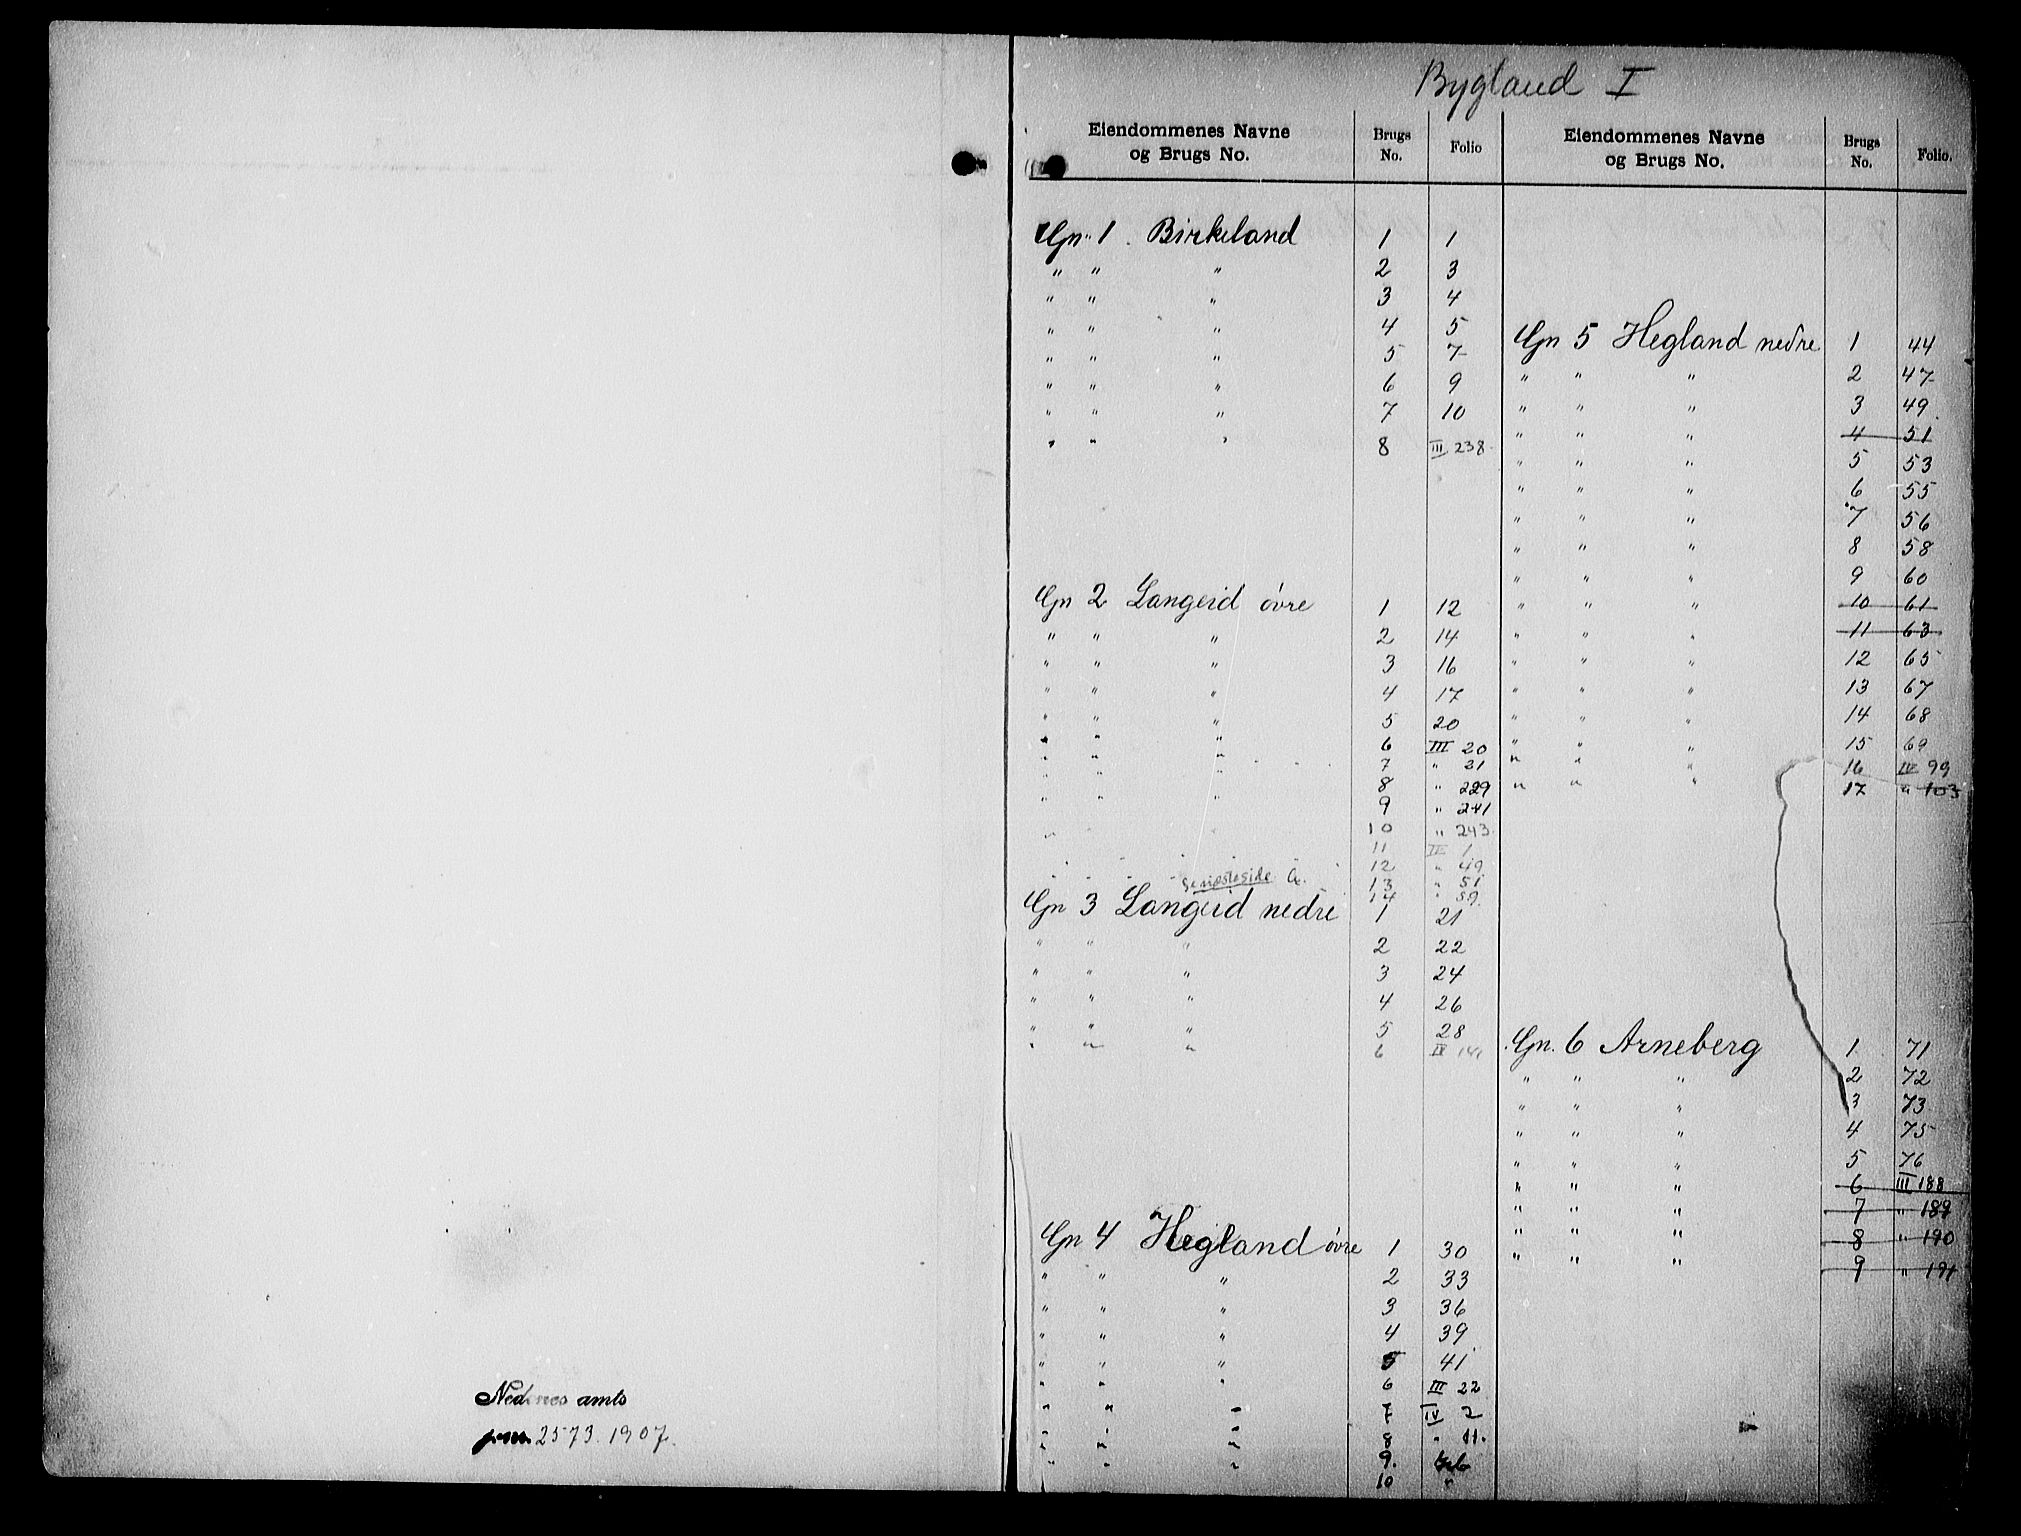 Nedenes amts
jour. 2573. 1907.
Bygland I
Eiendommenes Navne og Brugs No. | Brugs No. | Folio
Gn. 1. Birkeland 1 1
" " " 2 3
" " " 3 4
" " " 4 5
" " " 5 7
" " " 6 9
" " " 7 10
" " " 8 III 238
Gn 2 Langeid övre 1 12
" " " 2 14
" " " 3 16
" " " 4 17
" " " 5 20
" " " 6 III 20
" " " 7 " 21
" " " 8 " 229
" " " 9 " 241
" " 10 " 243
11 IV 1
12 " 49
13 " 51
14 " 59
Gn 3 Langeid nedre 1 21
" " " 2 22
" " " 3 24
" " " 4 26
" " " 5 28
" " " 6 IV
Gn 4 Hegland övre 1 30
" " " 2 33
" " " 3 36
" " " 4 39
" " " 5 41
" " " 6 III 22
" " " 7 IV 2
" " " 8 " 11.
" " " 9.
10 "
Eiendommenes Navne og Brugs No. | Brugs No. | Folio.
Gn 5 Hegland nedre 1 44
" " " 2 47
" " " 3 49
" " " 4 51
" " " 5 53
" " " 6 55
" " " 7 56
" " " 8 58
" " " 9 60
" " " 10 61
" " " 11 63
" " " 12 65
" " " 13 67
" " " 14 68
" " " 15 69
" " " 16 IV 99
" " " 17 " 103
Gn. 6 Arneberg 1 71
" " " 2 72
" " " 3 73
" " " 4 75
" " " 5 76
" " " 6 III 188
" " " 7 " 189
" " " 8 " 190
" " " 9 " 191